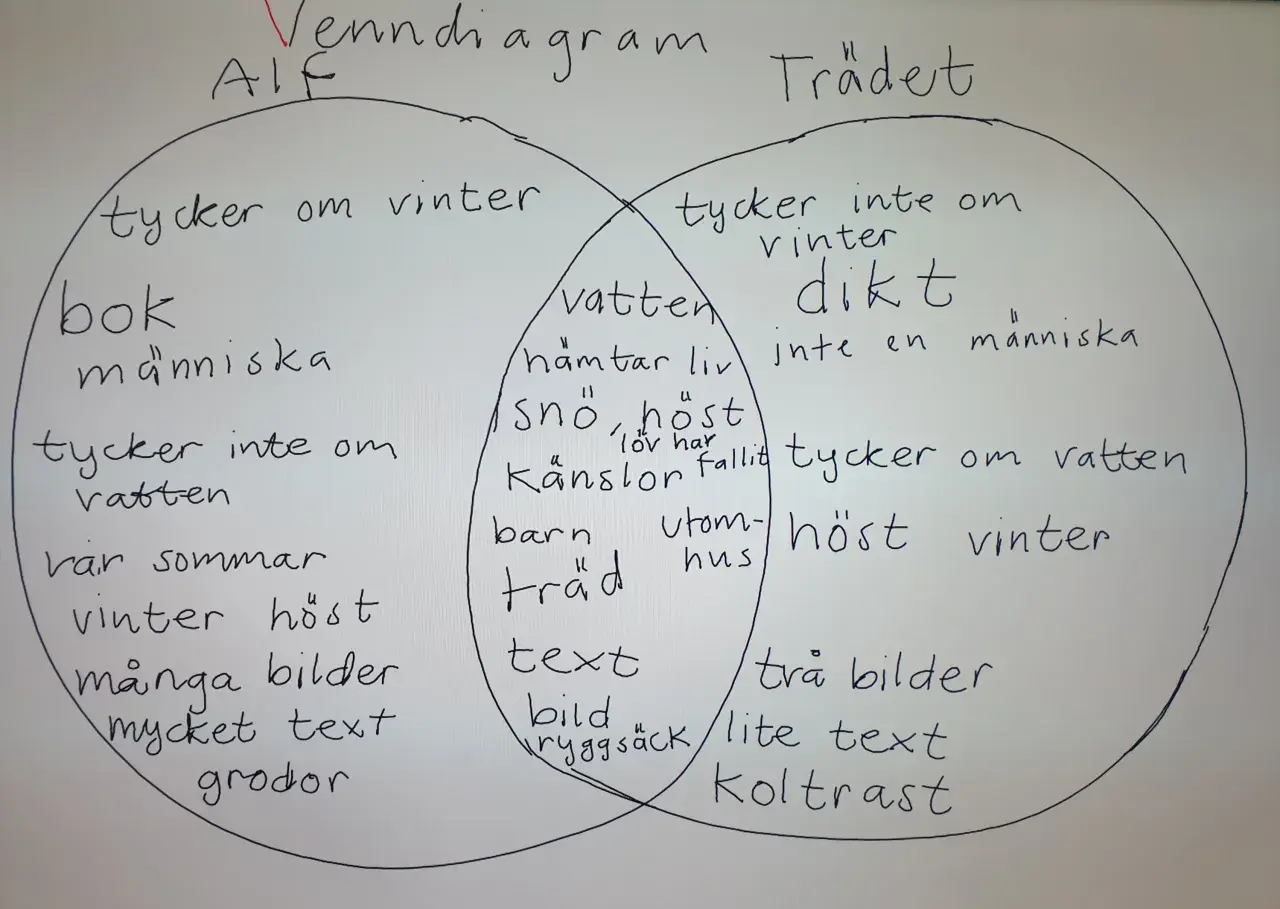 Venndiagram
Alf
Trädet
tycker om vinter
bok
människa
tycker inte om
vatten
vår sommar
vinter höst
många bilder
mycket text
grodor
vatten
hämtar liv
snö, höst
löv har
fallit
känslor
barn
utom-
hus
träd
text
bild
ryggsäck
tycker inte om
vinter
dikt
inte en människa
tycker om vatten
höst vinter
två bilder
lite text
koltrast